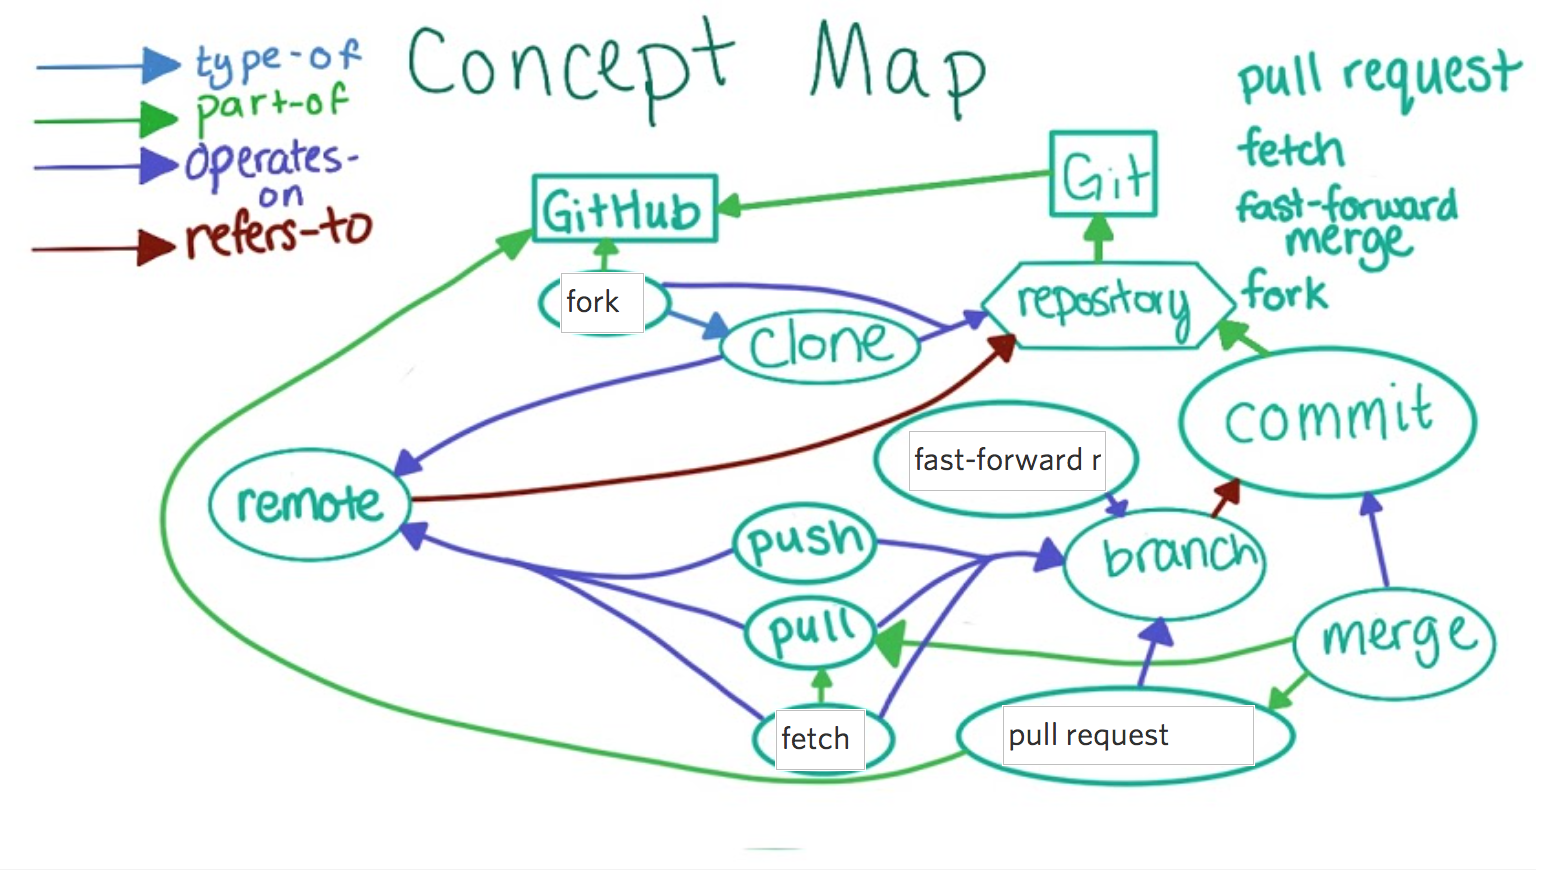 type-of
part-of
operates-
on
refers-to
Concept Map
pull request
fetch
fast-forward
merge
fork
GitHub
Git
fork
clone
repository
commit
remote
fast-forward r
push
branch
pull
merge
fetch
pull request